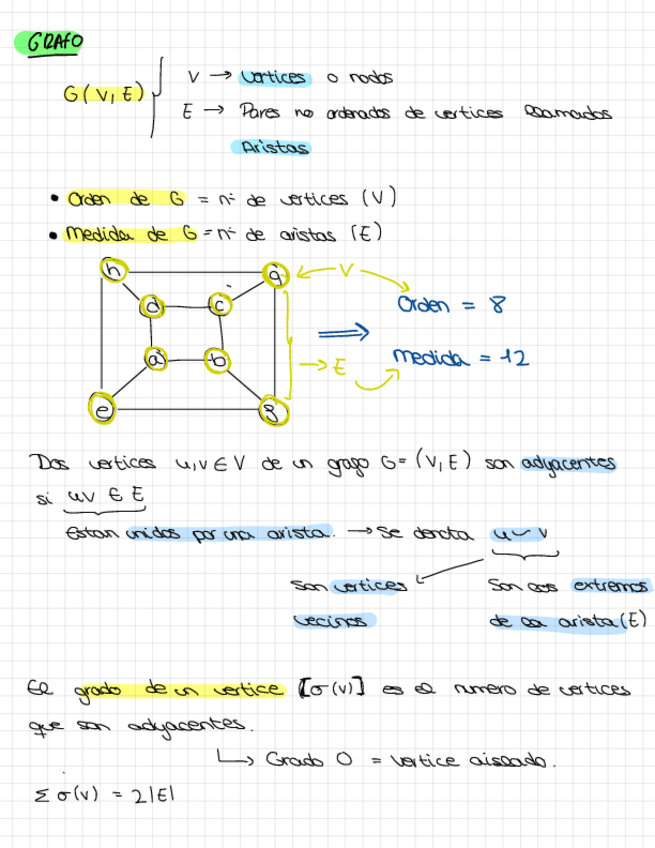 GRAFO
G(V, E)
V → vertices o nodos
E → Pares no ordenados de vertices llamados
Aristas
• Orden de G = nº de vertices (V)
• Medida de G = nº de aristas (E)
h
g
V
d
c
Orden = 8
a
b
→ E
medida = 12
e
Dos vertices u,v ∈ V de un grafo G = (V, E) son adyacentes
si uv ∈ E
Estan unidos por una arista. → Se denota u ~ v
Son vertices
Son los extremos
vecinos
de la arista (E)
El grado de un vertice [σ(v)] es el numero de vertices
que son adyacentes.
↳ Grado 0 = vertice aislado.
Σ σ(v) = 2|E|